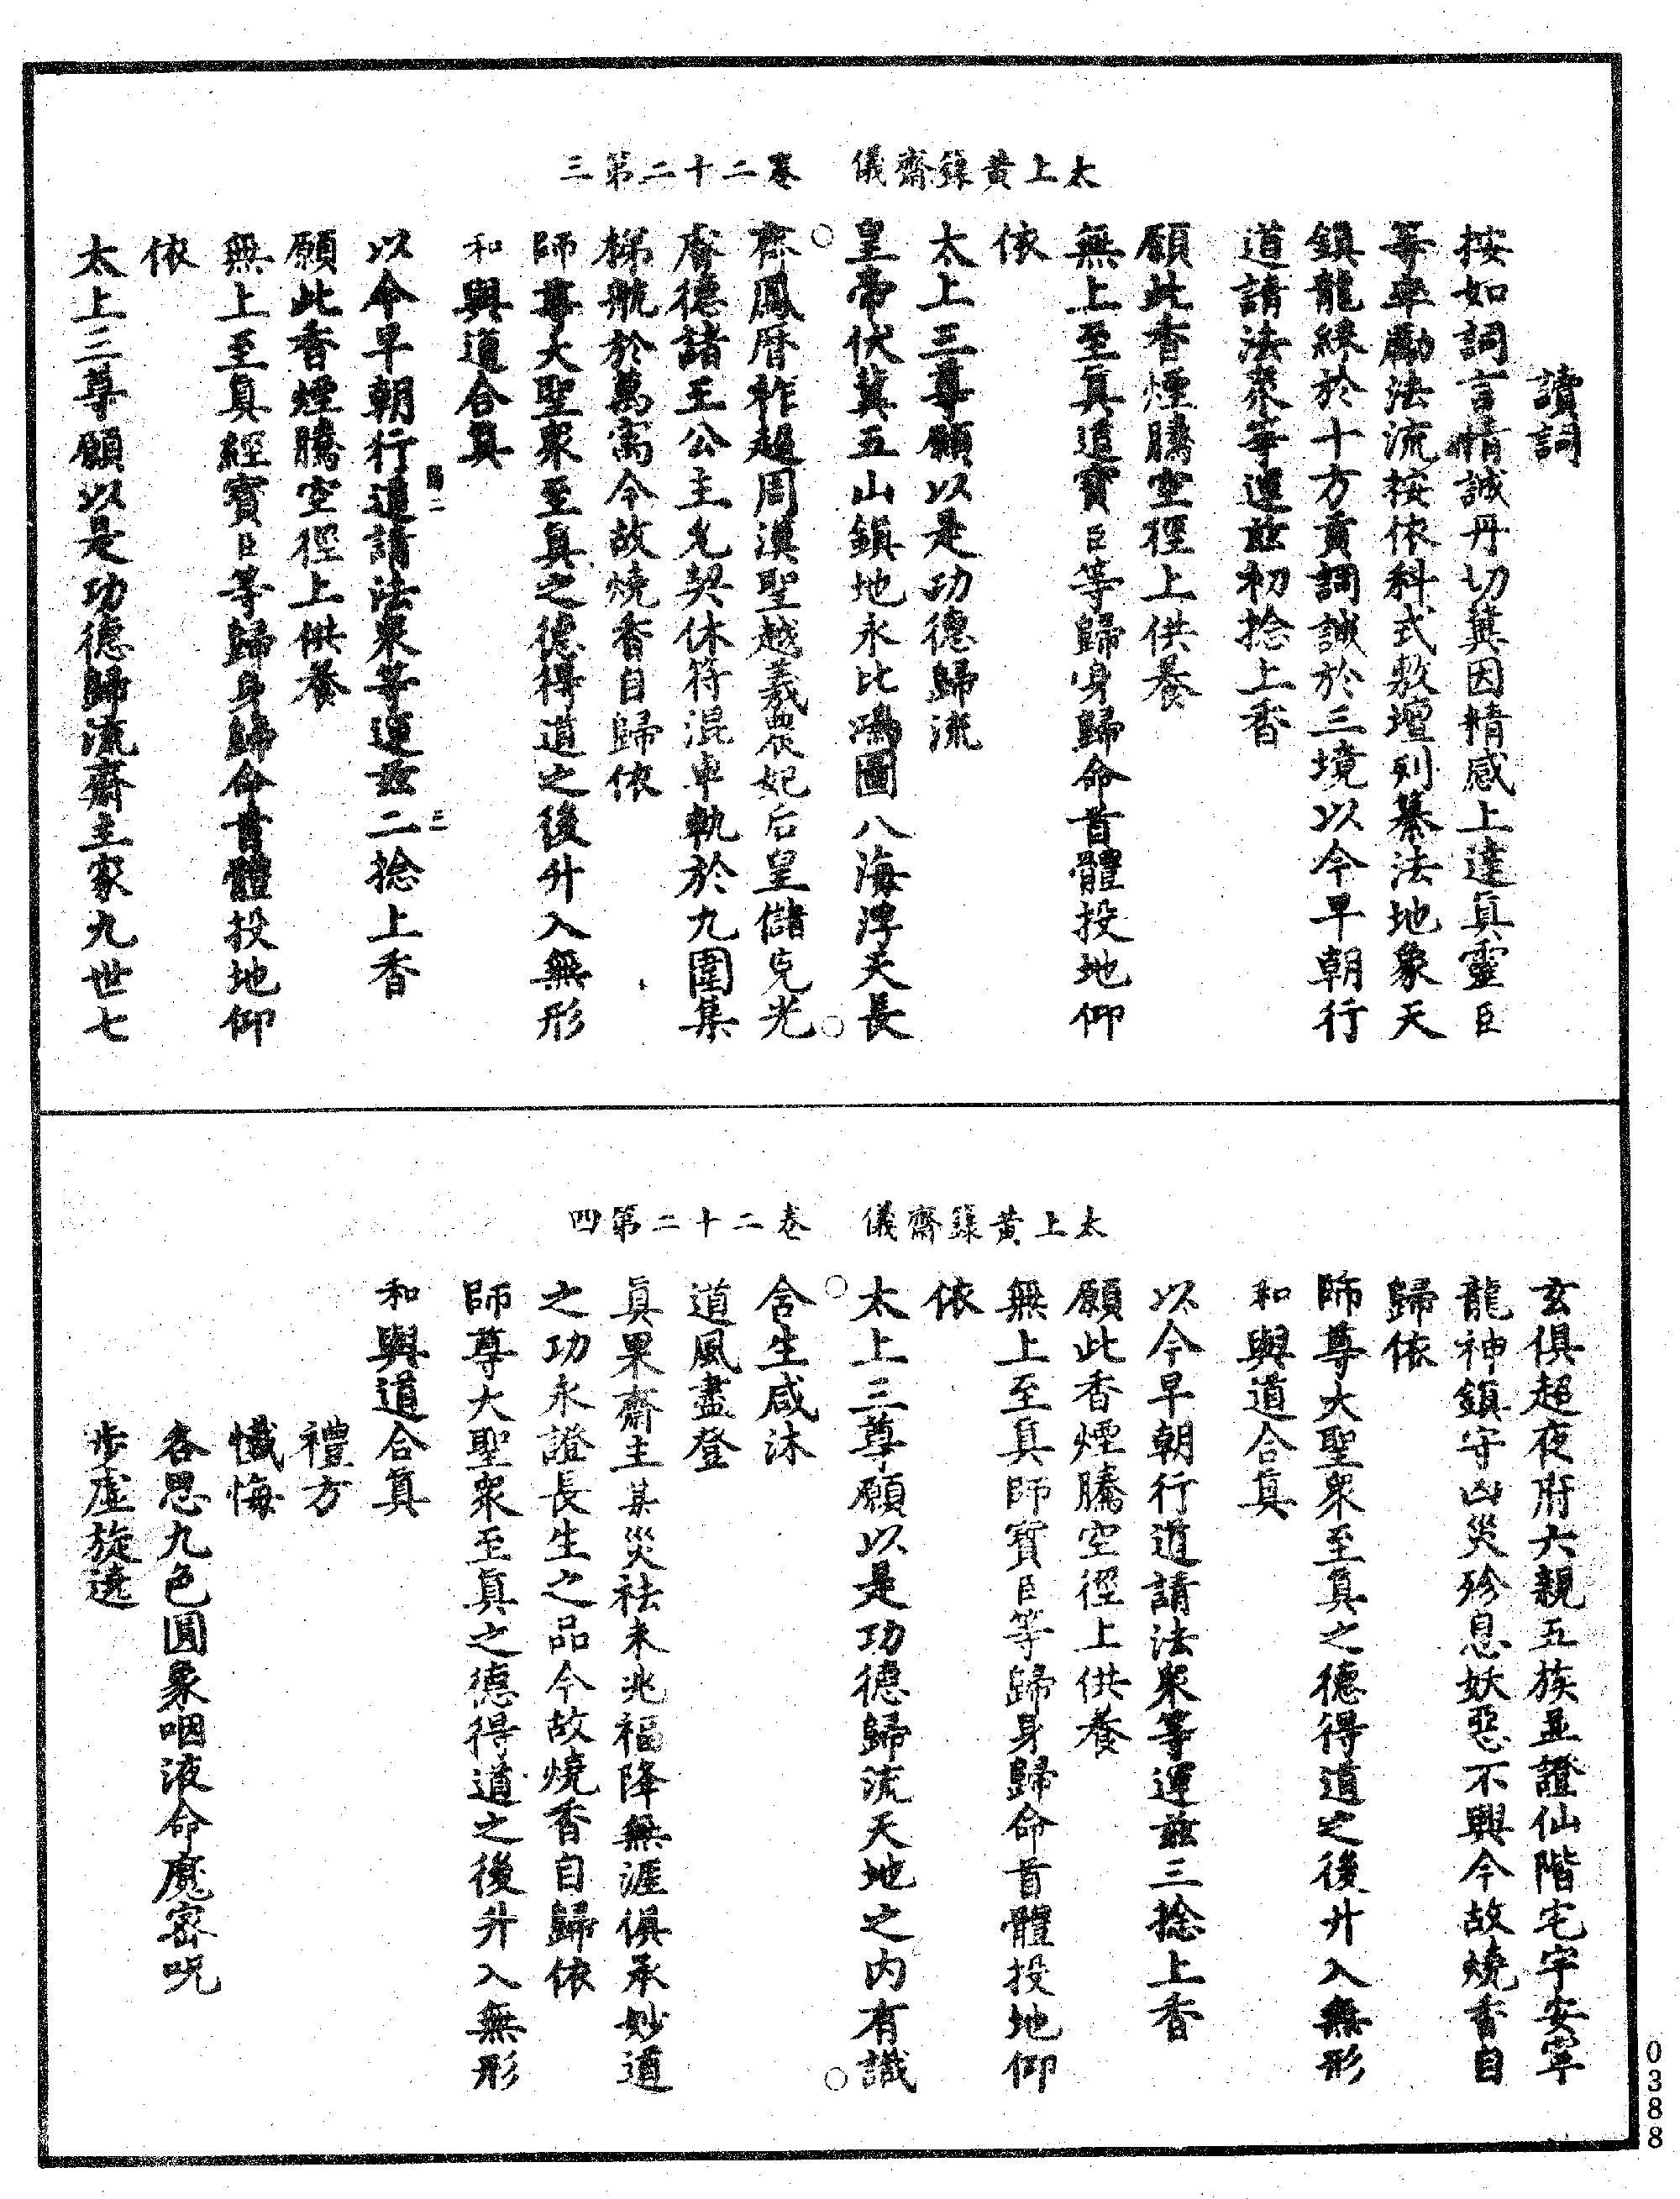 太上黃籙齋儀　卷二十二第三
讀詞
按如詞言情誠丹切冀因精感上達真靈臣
等率勵法流按依科式敷壇列纂法地象天
鎮龍綵於十方貢詞誠於三境以今早朝行
道請法眾等運茲初捻上香
願此香煙騰空徑上供養
無上至真道寶臣等歸身歸命首體投地仰
依
太上三尊願以是功德歸流
皇帝伏冀五山鎮地永比鴻圖八海浮天長
齊鳳曆祚超周漢聖越羲農妃后皇儲克光
睿德諸王公主允契休符混車軌於九圍集
梯航於萬寓今故燒香自歸依
師尊大聖眾至真之德得道之後升入無形
和與道合真
以今早朝行道請法眾等運茲二捻上香
願此香煙騰空徑上供養
無上至真經寶臣等歸身歸命首體投地仰
依
太上三尊願以是功德歸流齋主家九世七
太上黃籙齋儀　卷二十二第四
玄俱超夜府六親五族並證仙階宅宇安寧
龍神鎮守凶災殄息妖惡不興今故燒香自
歸依
師尊大聖眾至真之德得道之後升入無形
和與道合真
以今早朝行道請法眾等運茲三捻上香
願此香煙騰空徑上供養
無上至真師寶臣等歸身歸命首體投地仰
依
太上三尊願以是功德歸流天地之內有識
含生咸沐
道風盡登
真果齋主某災祛未兆福降無涯俱承妙道
之功永證長生之品今故燒香自歸依
師尊大聖眾至真之德得道之後升入無形
和與道合真
禮方
懺悔
各思九色圓象咽液命魔密呪
步虛旋遶
0388